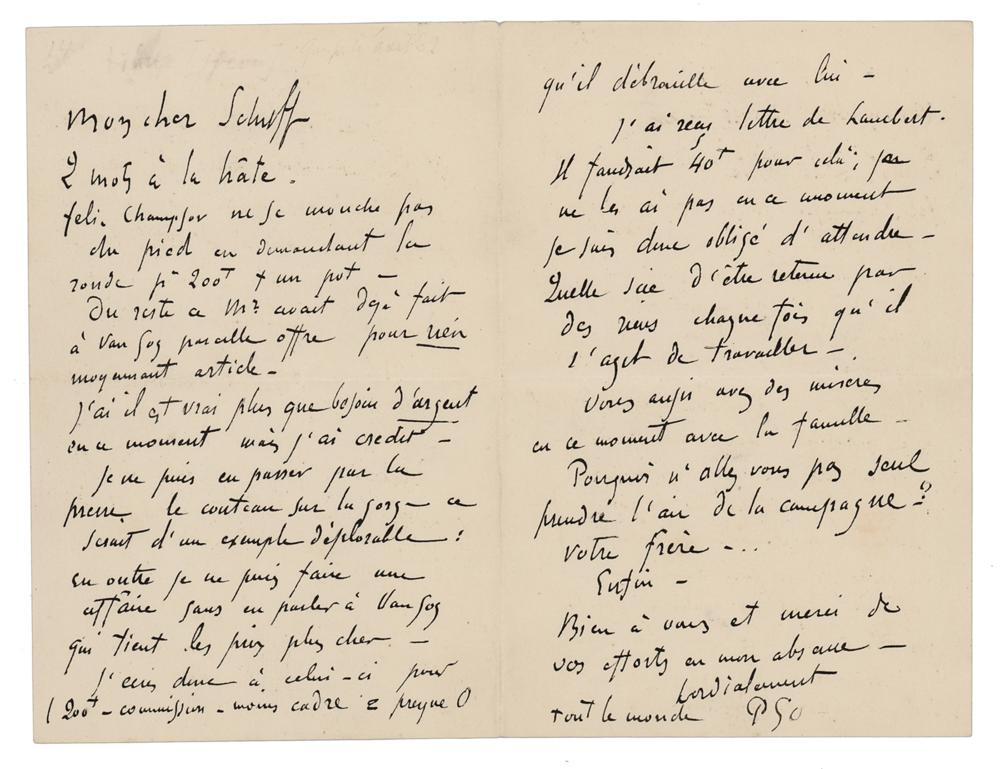 Mon cher Schuff
2 mots à la hâte.
feli. Champsor ne se mouche pas
du pied en demandant la
ronde pr 200f + un pot —
Du reste ce Mr avait déjà fait
à Van Gog pareille offre pour rien
moyennant article —
J'ai il est vrai plus que besoin d'argent
en ce moment mais j'ai credit —
Je ne puis en passer par la
presse le couteau sur la gorge ce
serait d'un exemple déplorable :
En outre je ne puis faire une
affaire sans en parler à Van Gog
qui tient les prix plus cher —
J'ecris donc à celui-ci pour
(200f — commission — moins cadre = presque 0
qu'il débrouille avec lui —
J'ai reçu lettre de Lambert.
Il faudrait 40f pour celà; je
ne les ai pas en ce moment
je suis donc obligé d'attendre —
Quelle scie d'être retenu par
des riens chaque fois qu'il
s'agit de travailler —
Vous aussi avez des miseres
en ce moment avec la famille —
Pourquoi n'allez vous pas seul
prendre l'air de la campagne — ?
Votre frère — ...
Enfin —
Bien à vous et merci de
vos efforts en mon absence —
Cordialement
tout le monde PGo